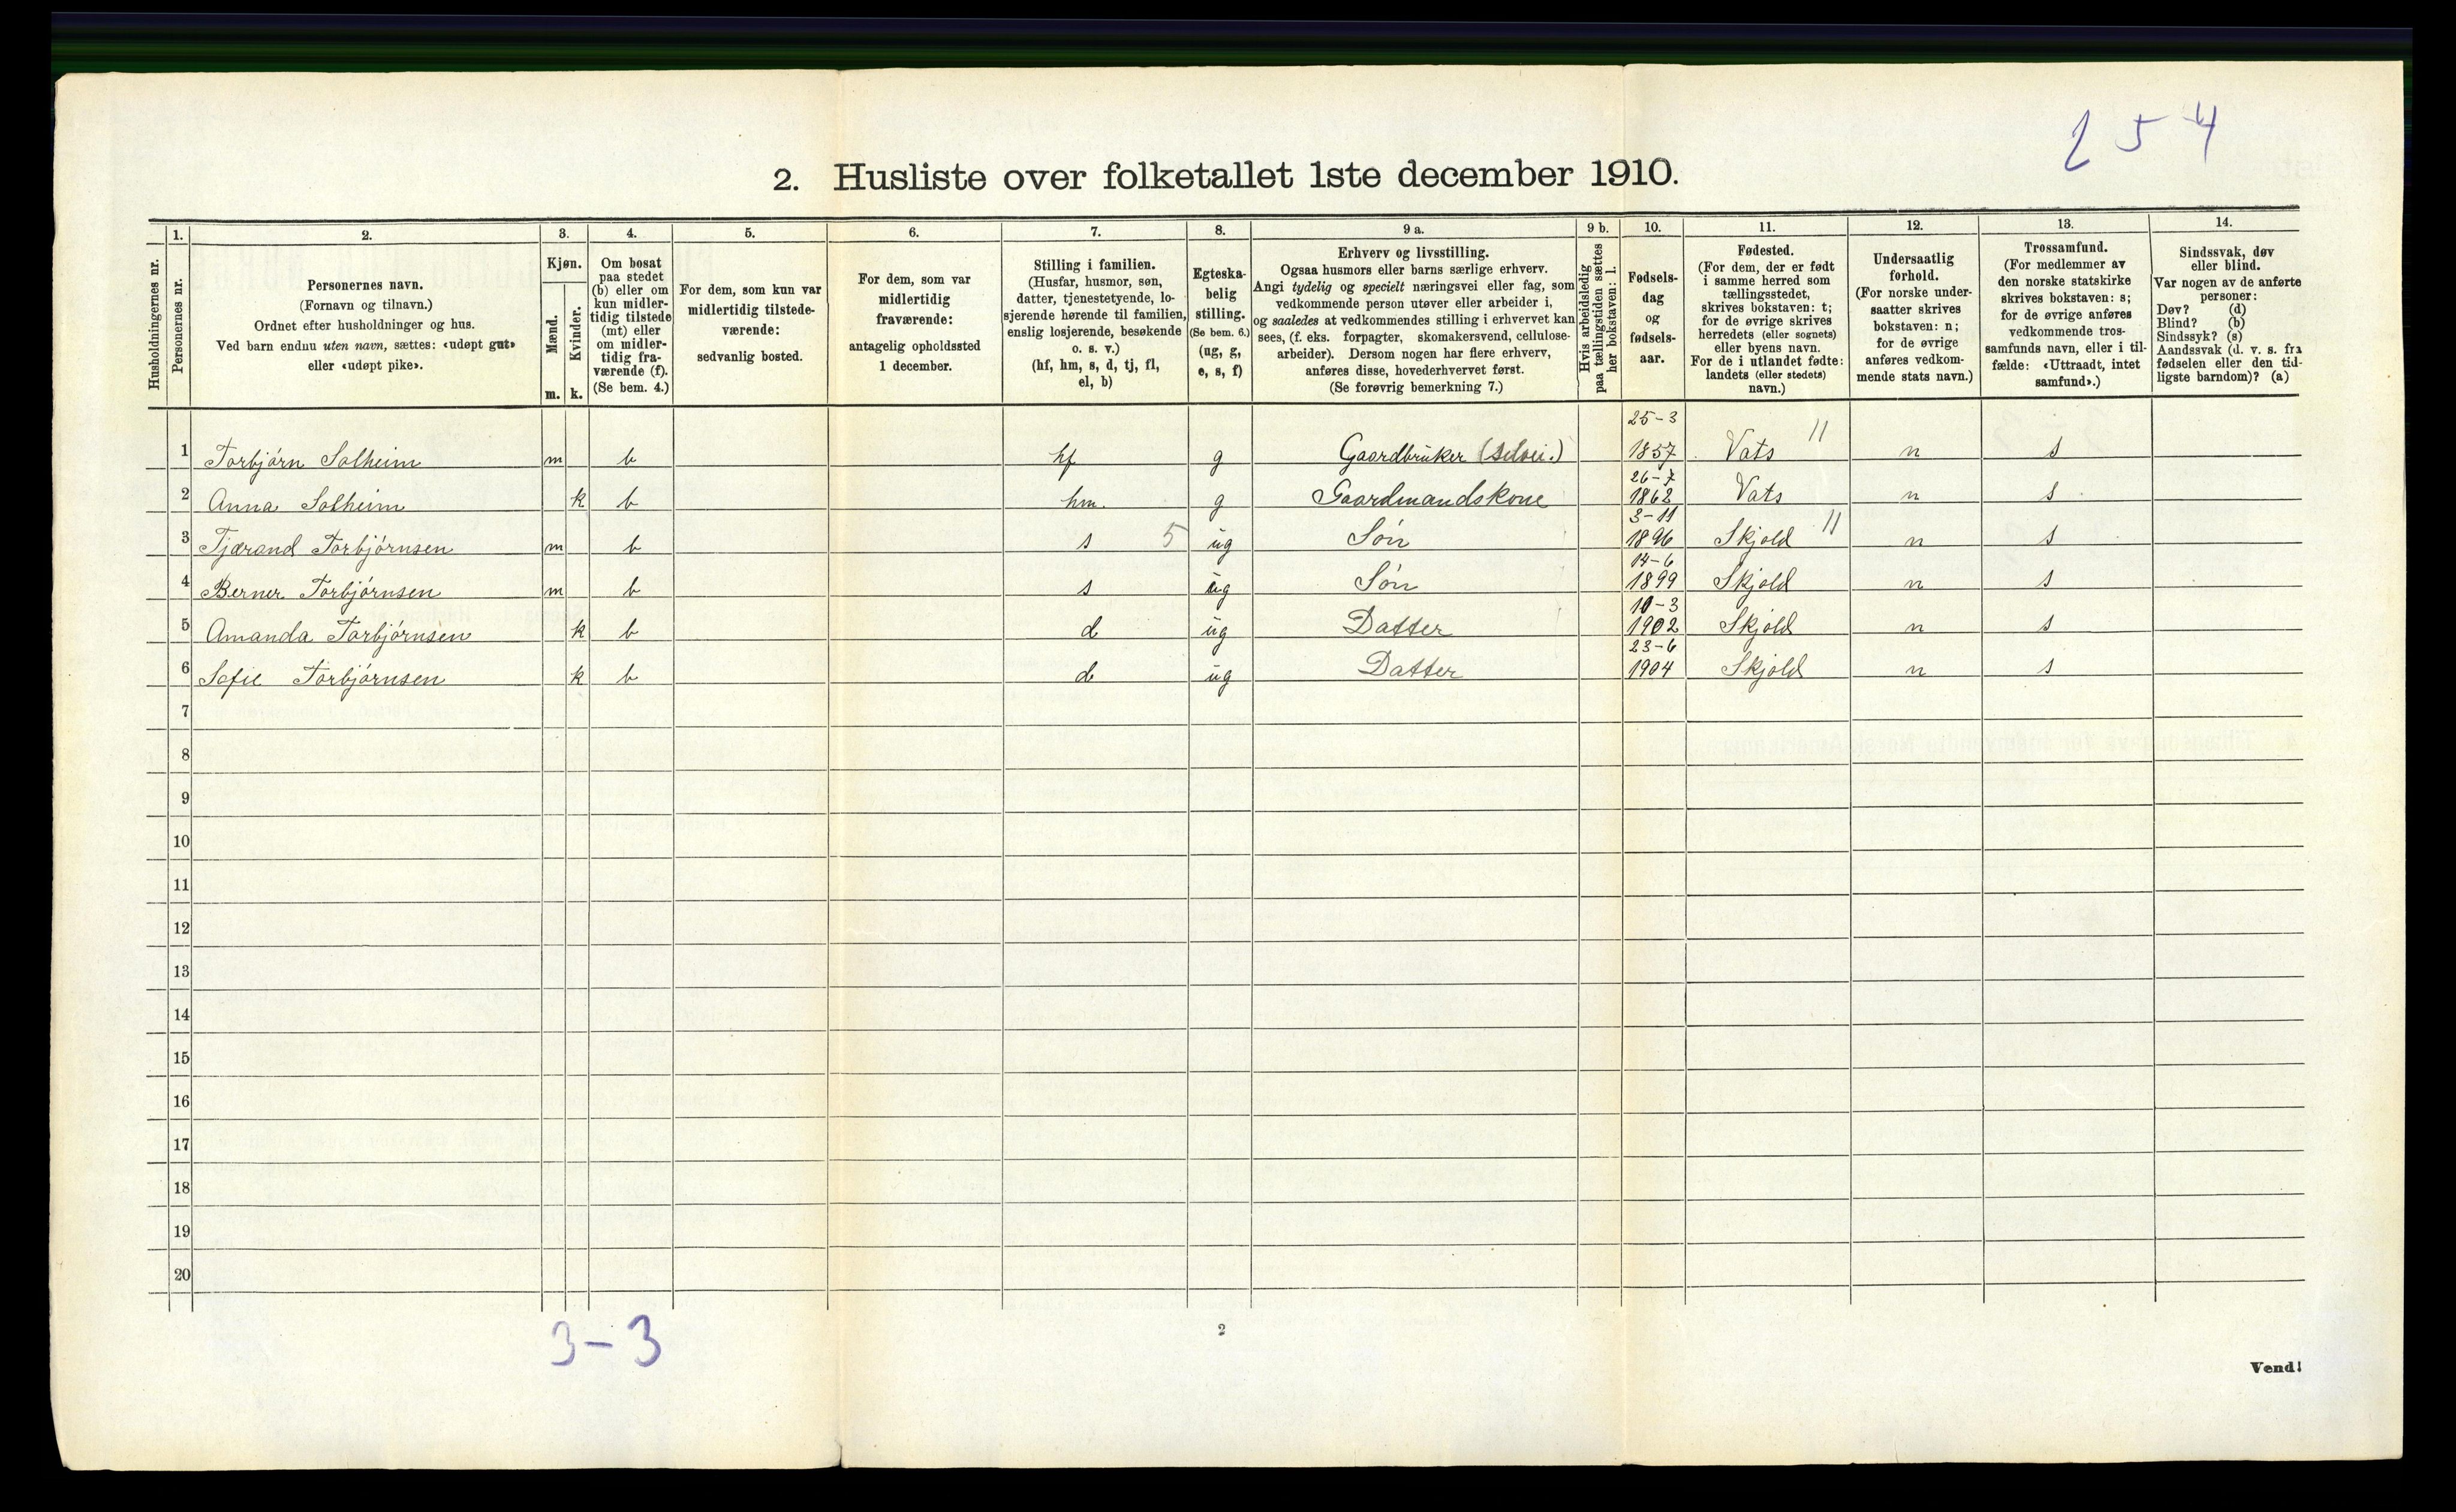 254
2. Husliste over folketallet 1ste december 1910.
Husholdningernes nr.
1.
Personernes nr.
2.
Personernes navn.
(Fornavn og tilnavn.)
Ordnet efter husholdninger og hus.
Ved barn endnu uten navn, sættes: «udøpt gut»
eller «udøpt pike».
3.
Kjøn.
Mænd.
Kvinder.
m. k.
4.
Om bosat
paa stedet
(b) eller om
kun midler-
tidig tilstede
(mt) eller
om midler-
tidig fra-
værende (f).
(Se bem. 4.)
5.
For dem, som kun var
midlertidig tilstede-
værende:
sedvanlig bosted.
6.
For dem, som var
midlertidig
fraværende:
antagelig opholdssted
1 december.
7.
Stilling i familien.
(Husfar, husmor, søn,
datter, tjenestetyende, lo-
sjerende hørende til familien,
enslig losjerende, besøkende
o. s. v.)
(hf, hm, s, d, tj, fl,
el, b)
8.
Egteska-
belig
stilling.
(Se bem. 6.)
(ug, g,
e, s, f)
9 a.
Erhverv og livsstilling.
Ogsaa husmors eller barns særlige erhverv.
Angi tydelig og specielt næringsvei eller fag, som
vedkommende person utøver eller arbeider i,
og saaledes at vedkommendes stilling i erhvervet kan
sees, (f. eks. forpagter, skomakersvend, cellulose-
arbeider). Dersom nogen har flere erhverv,
anføres disse, hovederhvervet først.
(Se forøvrig bemerkning 7.)
9 b.
Hvis arbeidsledig
paa tællingstiden sættes
her bokstaven: l.
10.
Fødsels-
dag
og
fødsels-
aar.
11.
Fødested.
(For dem, der er født
i samme herred som
tællingsstedet,
skrives bokstaven: t;
for de øvrige skrives
herredets (eller sognets)
eller byens navn.
For de i utlandet fødte:
landets (eller stedets)
navn.)
12.
Undersaatlig
forhold.
(For norske under-
saatter skrives
bokstaven: n;
for de øvrige
anføres vedkom-
mende stats navn.)
13.
Trossamfund.
(For medlemmer av
den norske statskirke
skrives bokstaven: s;
for de øvrige anføres
vedkommende tros-
samfunds navn, eller i til-
fælde: «Uttraadt, intet
samfund».)
14.
Sindssvak, døv
eller blind.
Var nogen av de anførte
personer:
Døv? (d)
Blind? (b)
Sindssyk? (s)
Aandssvak (d. v. s. fra
fødselen eller den tid-
ligste barndom)? (a)
1 Torbjørn Solheim m b hf g Gaardbruker (selvei.) 25-3 1857 Vats 11 n s
2 Anna Solheim k b hm. g Gaardmandskone 26-7 1862 Vats n s
3 Tjærand Torbjørnsen m b s 5 ug Søn 3-11 1896 Skjold 11 n s
4 Berner Torbjørnsen m b s ug Søn 14-6 1899 Skjold n s
5 Amanda Torbjørnsen k b d ug Datter 10-3 1902 Skjold n s
6 Sofie Torbjørnsen k b d ug Datter 23-6 1904 Skjold n s
7
8
9
10
11
12
13
14
15
16
17
18
19
20
3-3
2
Vend!